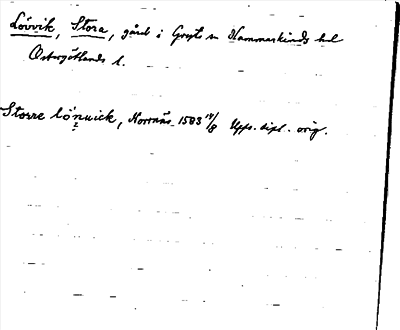 Lövvik, Stora, gård i Gryts sn Hammarkinds hd
Östergötlands l.
Storre lönuick, Norrnäs 1583 18/8 Upps. dipl. orig.